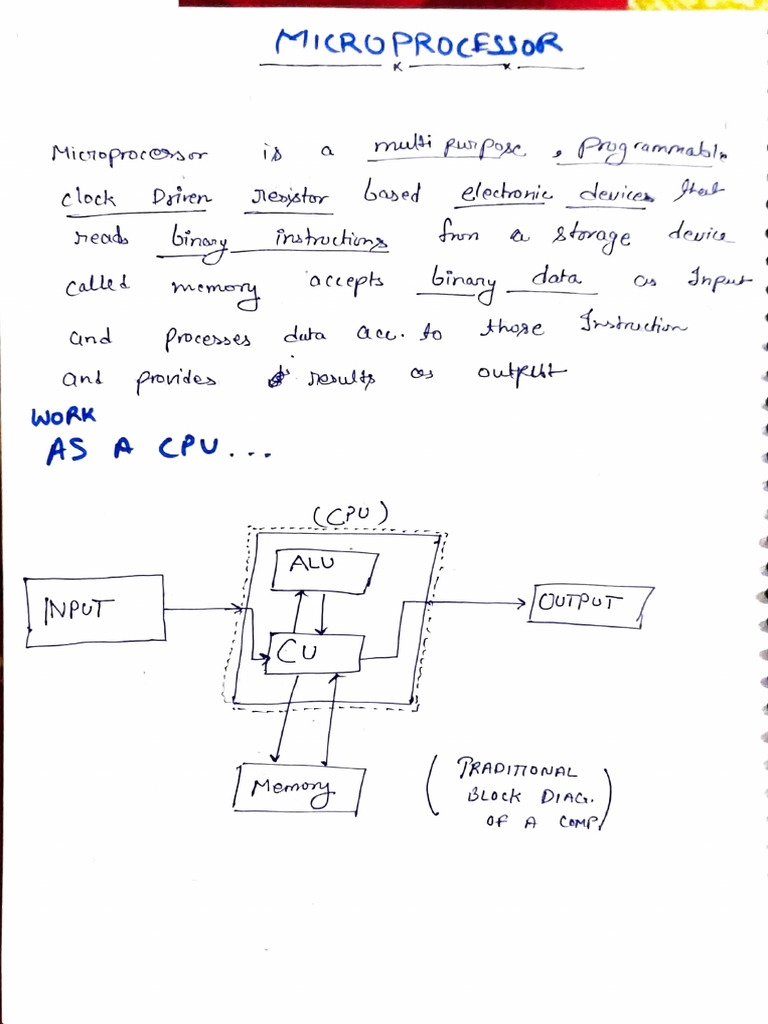 MICROPROCESSOR
Microprocessor is a multi purpose, Programmable
clock Driven resistor based electronic devices that
reads binary instructions from a storage device
called memory accepts binary data as Input
and processes data acc. to those Instruction
and provides results as output
WORK
AS A CPU...
(CPU)
ALU
INPUT
OUTPUT
CU
Memory
(TRADITIONAL
BLOCK DIAG.
OF A COMP.)